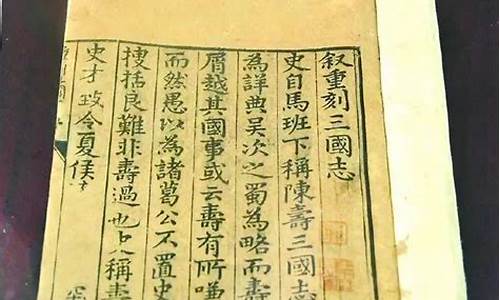 叙重刻三國志
史自馬班下稱陳壽三國
為詳典吴次之蜀為略而壽
屑越其國事或云壽有所嗛
而然愚以為諸葛公不置史
捿括良難非壽過也上稱壽
史才政令夏侯